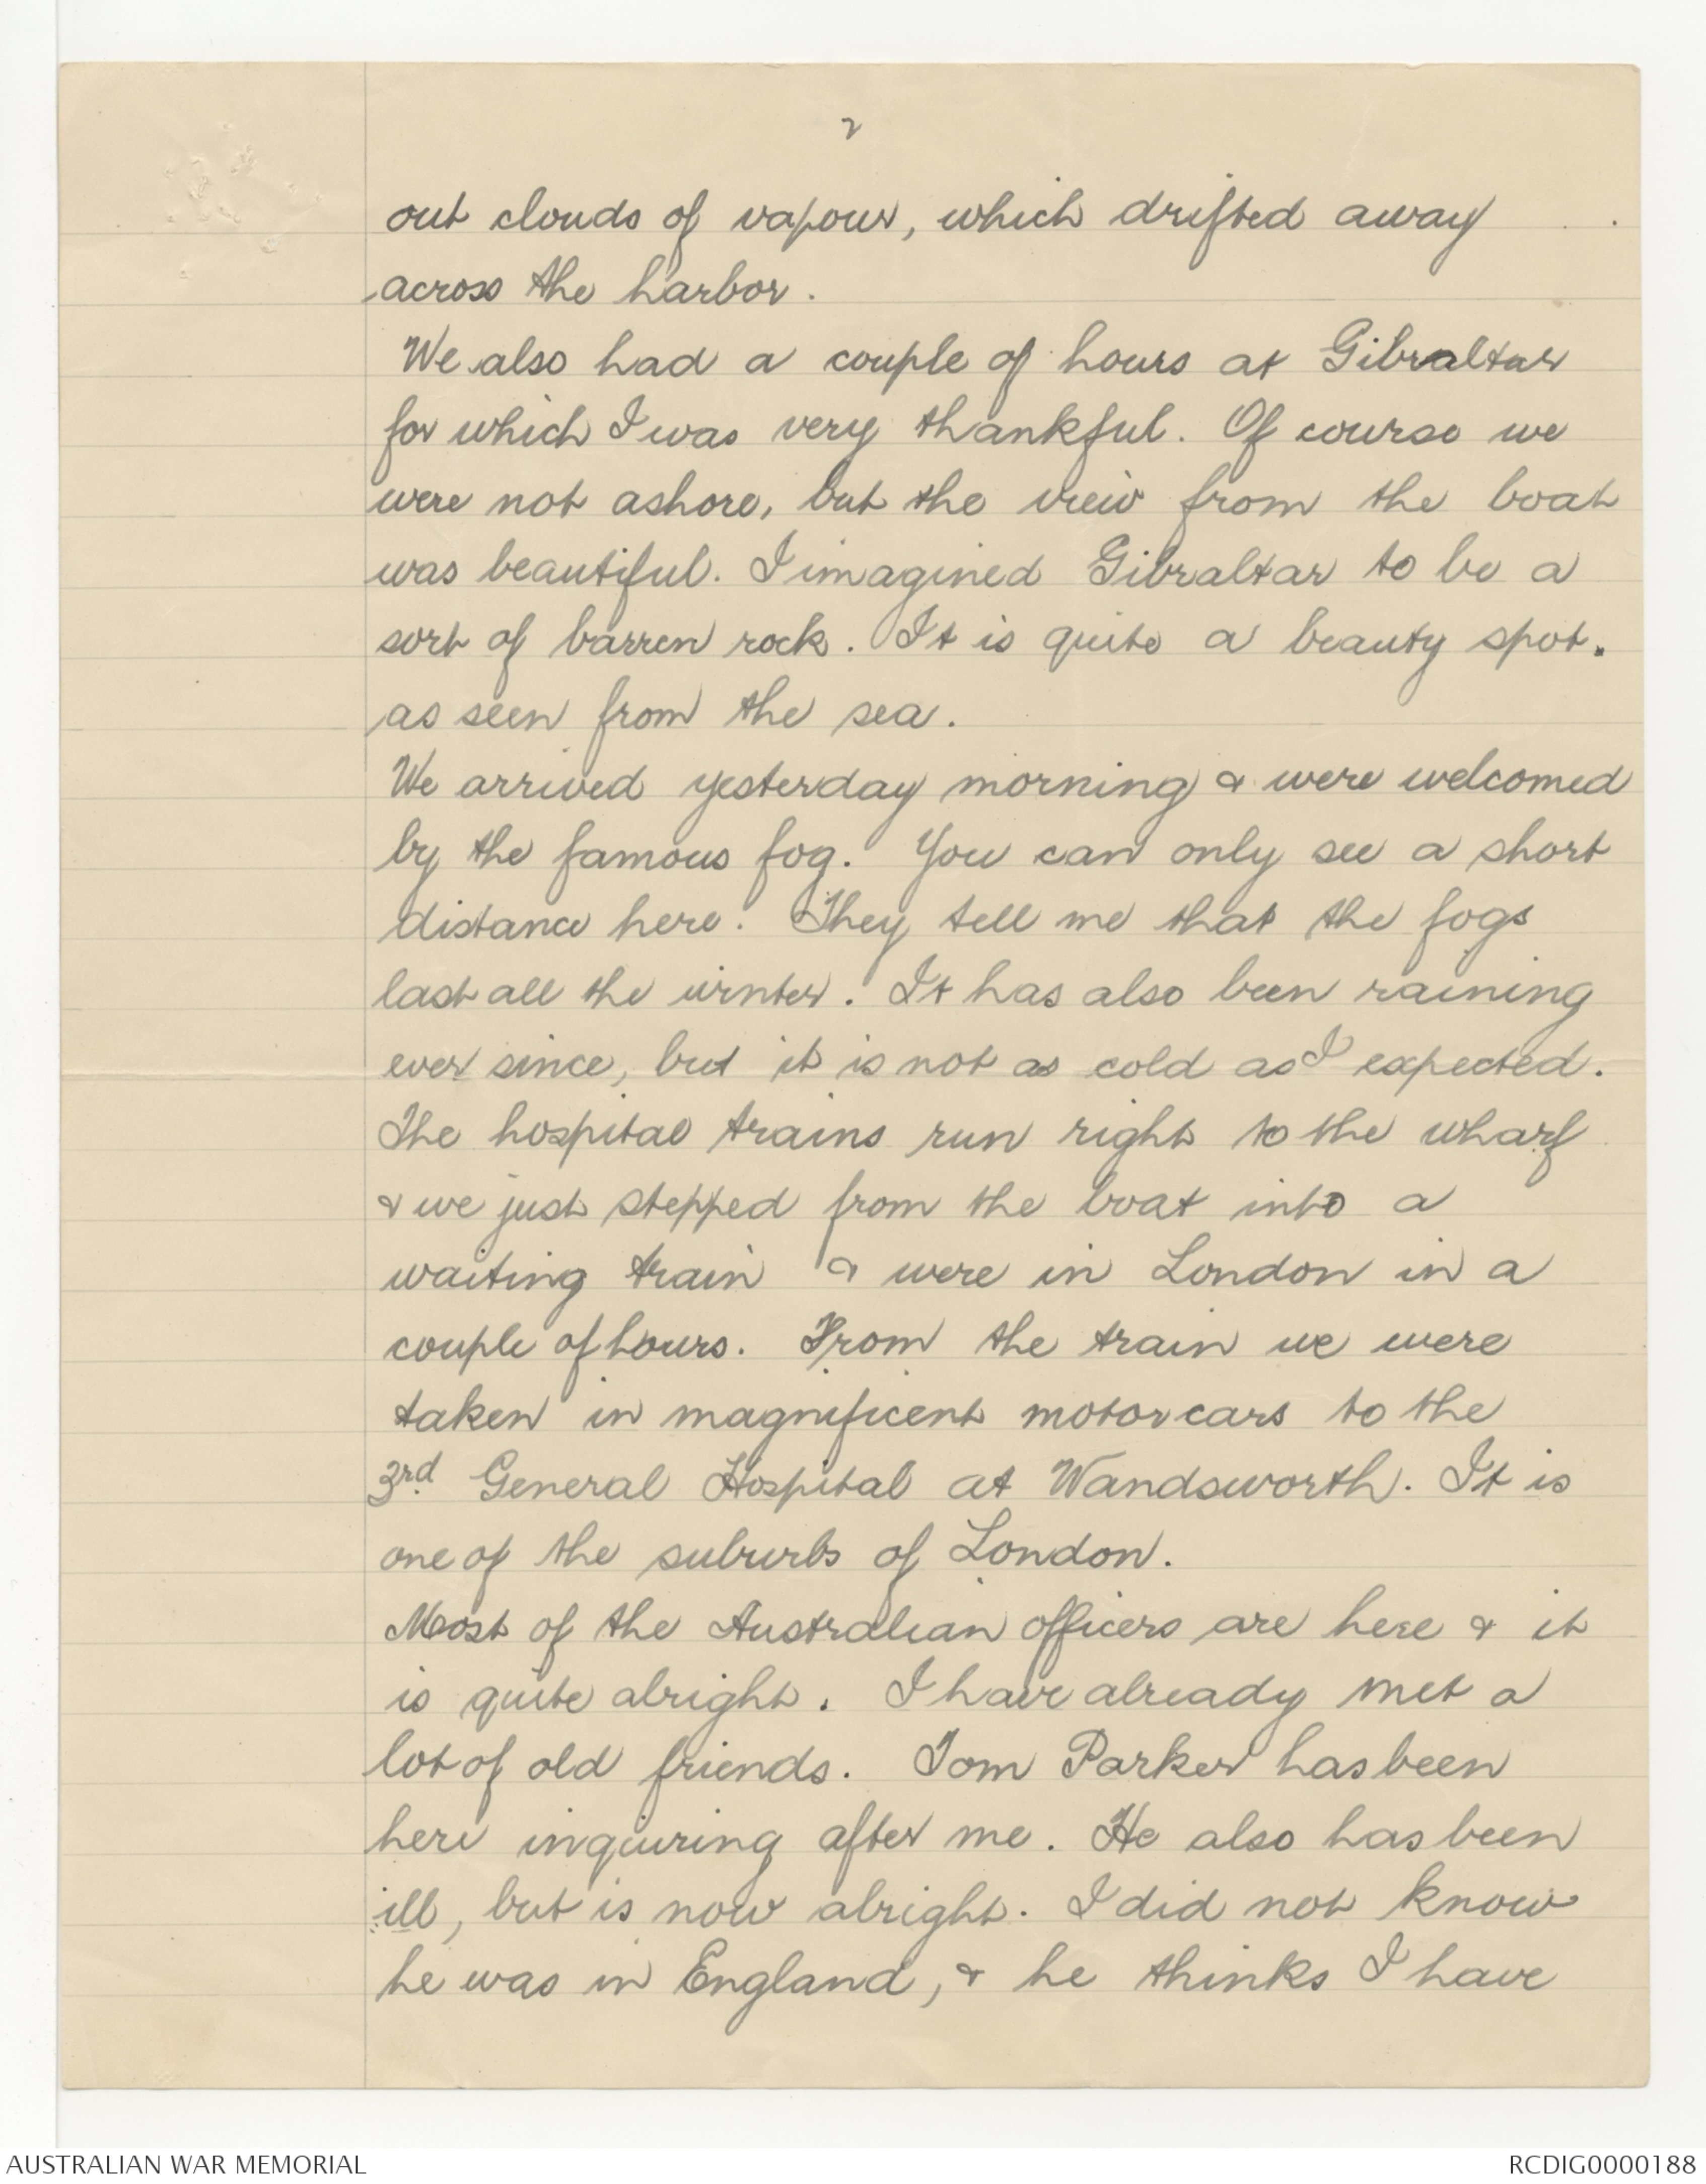 2
out clouds of vapour, which drifted away
across the harbor.
We also had a couple of hours at Gibraltar
for which I was very thankful. Of course we
were not ashore, but the view from the boat
was beautiful. I imagined Gibraltar to be a
sort of barren rock. It is quite a beauty spot.
as seen from the sea.
We arrived yesterday morning & were welcomed
by the famous fog. You can only see a short
distance here. They tell me that the fogs
last all the winter. It has also been raining
ever since, but it is not as cold as I expected.
The hospital trains run right to the wharf
& we just stepped from the boat into a
waiting train & were in London in a
couple of hours. From the train we were
taken in magnificent motor cars to the
3rd General Hospital at Wandsworth. It is
one of the suburbs of London.
Most of the Australian officers are here & it
is quite alright. I have already met a
lot of old friends. Tom Parker has been
here inquiring after me. He also has been
ill, but is now alright. I did not know
he was in England, & he thinks I have
AUSTRALIAN WAR MEMORIAL
RCDIG0000188